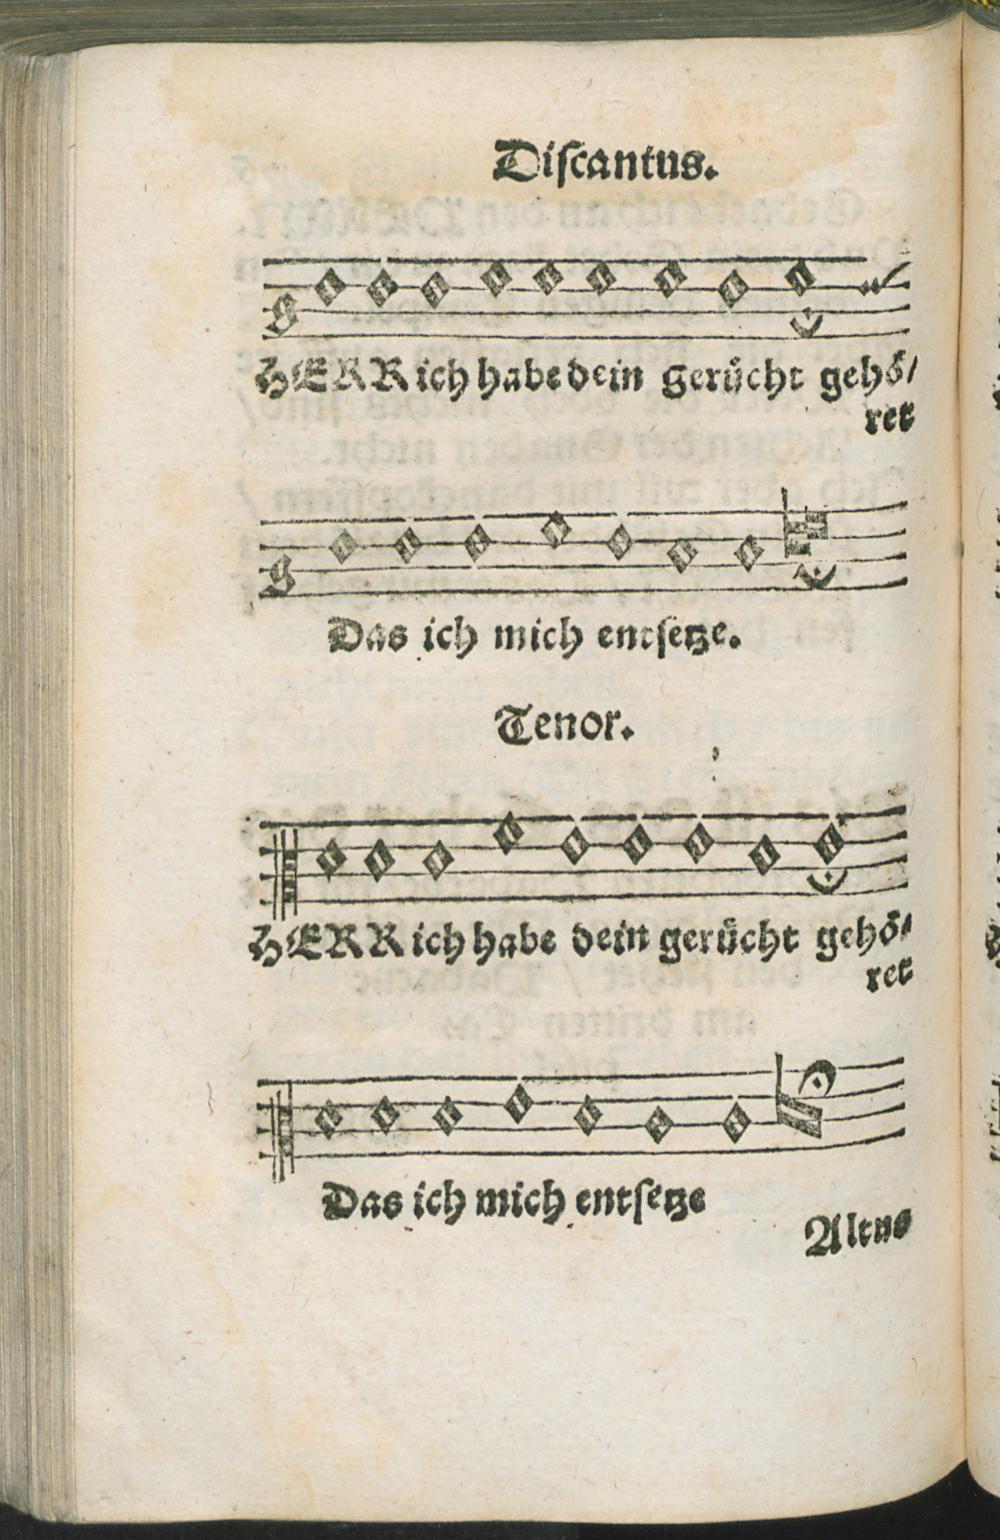 Diſcantus.
HERR ich habe dein gerücht gehö/
ret
Das ich mich entſetze.
Tenor.
HERR ich habe dein gerücht gehö/
ret
Das ich mich entſetze
Altus